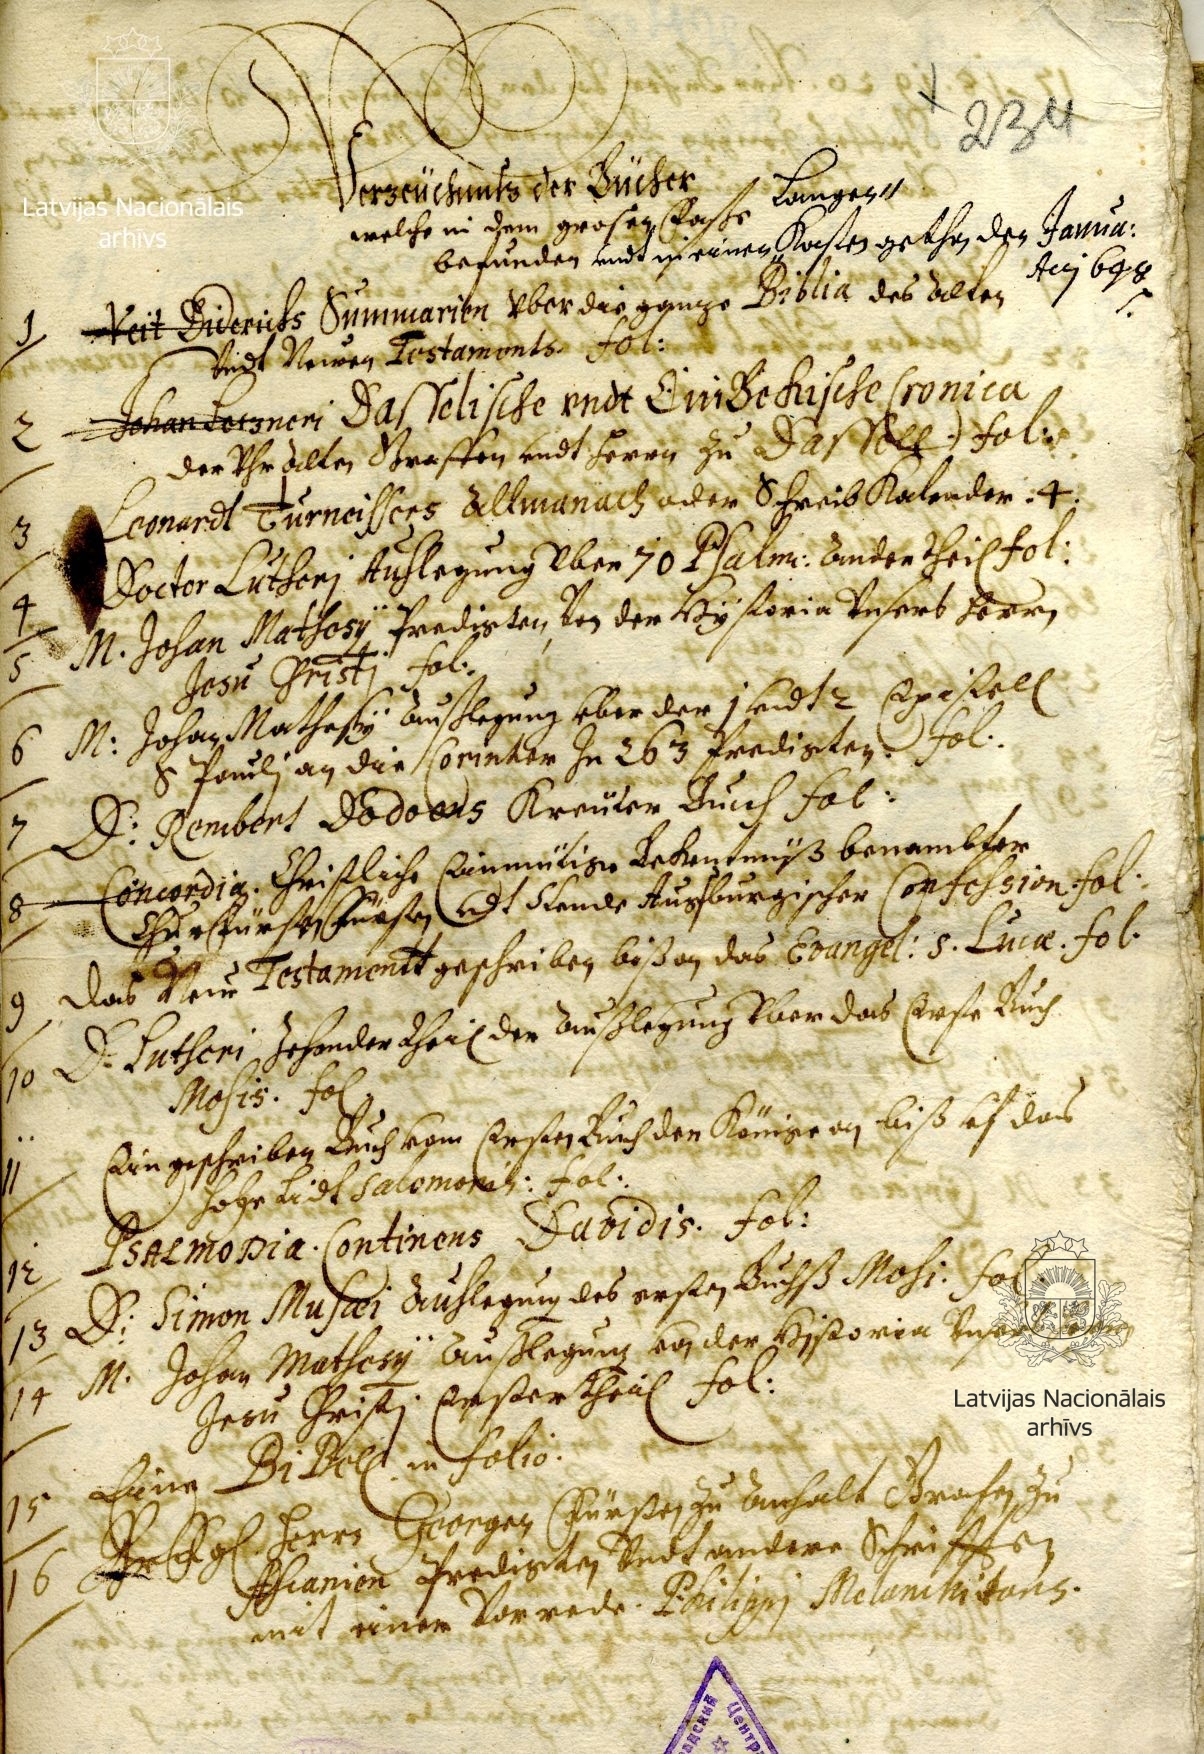 234
Latvijas Nacionālais
arhīvs
Verzeüchnuß der Bücher
welche in dem grosen
Langen
befunden undt in einen Kasten gethan den Janua:
Arij 648
1 Veit Diderichs Summarien Vber die gantze Biblia des alten
Vndt Neuen Testaments. fol:
2 Johan Letzneri Dasselische vndt EinBekische Cronica
der Vhralten Graffen vndt Herrn zu Dassell fol:
3 Leonardt Turneissers Allmanach oder SchreibKalender. 4.
4 Doctor Lutherj Außlegung Vber 70 Psalm: ander theil fol:
5 M. Johan Mathesij Predigten, Von der Hystoria Vnsers Herrn
Jesu Christj fol:
6 M: Johan Mathesij Außlegung vber der 1 undt 2 Epistell
S Paulj an die Corinter In 263 Predigten. fol.
7 D: Rembert Dodoens Kreuter Buch fol:
8 Concordia. Christliche Einmütige Bekentnuß benambter
ChurFürsten Fürsten vndt Stende Augsburgischer Confession. fol.
9 Das Neue Testamentt geschriben biß an das Evangel: S. Lucæ. fol.
10 D. Lutheri Zehender theil der Außlegung Vber das Erste Buch
Mosis. fol.
11 Ein geschriben Buch vom Ersten Buch der Könige an biß vf das
Hohe Lidt Salomonis: fol:
12 PSALMODIA. Continens Davidis. fol:
13 D: Simon Musæi Außlegung des ersten Buchß Mosi. fol.
14 M. Johan Mathesij Außlegung von der Historia Vnsers Herrn
Jesu Christj Erster theil fol:
15 Eine BiBell in folio.
16 Herrn Georgen Fürsten zu Anhalt Grafen zu
Ascanien Predigten Vndt andere Schrifften
mit einer Vorrede. Philippj Melanchtons.
Latvijas Nacionālais
arhīvs